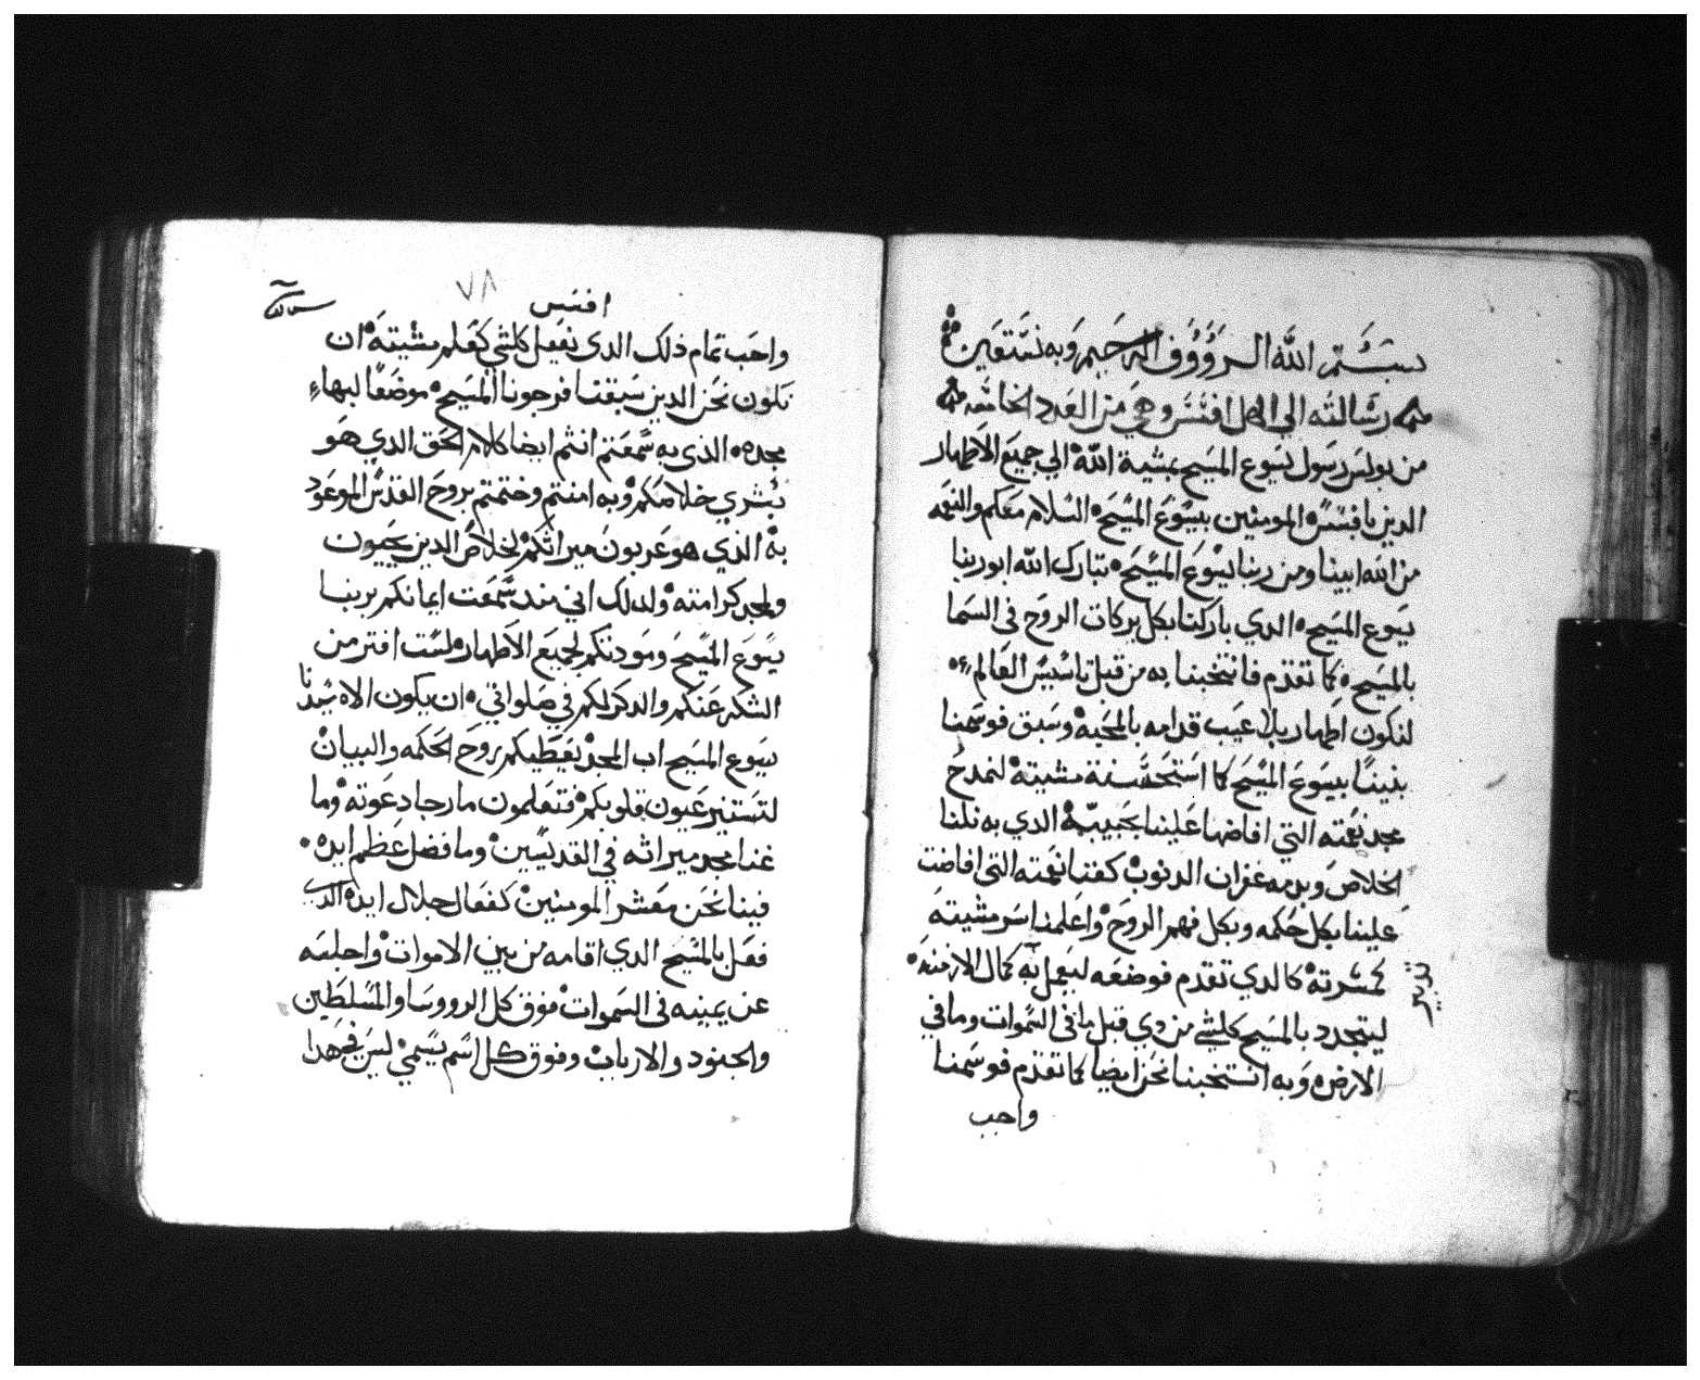 بسم الله الرووف الرحيم وبه نستعين
رسالته الي اهل افسس وهي من العدد الخامسه
من بولس رسول يسوع المسيح بمشية الله الي جميع الاطهار
الدين بافسس المومنين بيسوع المسيح السلام معكم والنعمه
من الله ابينا ومن ربنا يسوع المسيح تبارك الله ابو ربنا
يسوع المسيح الدي باركنا بكل بركات الروح في السما
بالمسيح كما تقدم فانتخبنا به من قبل تاسيس العالم
لنكون اطهار بلا عيب قدامه بالمحبه وسبق فوسمنا
بنينا بيسوع المسيح كما استحسنة مشيته لنمدح
مجد نعمته التي افاضها علينا بحبيبه الدي به نلنا
الخلاص وبدمه غفران الدنوب كفنا نعمته التي افاضت
علينا بكل حكمه وبكل فهم الروح واعلمنا سر مشيته
كمسرته كالدي تقدم فوضعه ليعمل به كمال الازمنه
تدبير
ليتجدد بالمسيح كلشي من دي قبل ما في السموات وما في
الارض وبه انتخبنا نحن ايضا كما تقدم فوسمنا
واحب
افسس
٧٨
واحب تمام ذلك الدي يفعل كلشي كعلم مشيته ان
نكون نحن الدين سبقنا فرجونا المسيح موضعا لبهاء
مجده الذي به سمعتم انتم ايضا كلام الحق الدي هو
بشري خلاصكم وبه امنتم وختمتم بروح القدس الموعود
به الذي هو عربون ميراثكم لخلاص الدين يحيون
ولمجد كرامته ولدلك اني مند سمعت ايمانكم بربنا
يسوع المسيح ومودتكم لجميع الاطهار لست افتر من
الشكر عنكم والدكر لكم في صلواتي ان يكون الاه سيدنا
يسوع المسيح اب المجد يعطيكم روح الحكمه والبيان
لتستنير عيون قلوبكم فتعلمون ما رجا دعوته وما
غنا مجد ميراثه في القديسين وما فضل عظم ايده
فينا نحن معشر المومنين كفعال جلال ايده الدي
فعل بالمسيح الدي اقامه من بين الاموات واجلسه
عن يمينه في السموات فوق كل الرووسا والمسلطين
والجنود والارباب وفوق كل اسم يسمي ليس في هدا